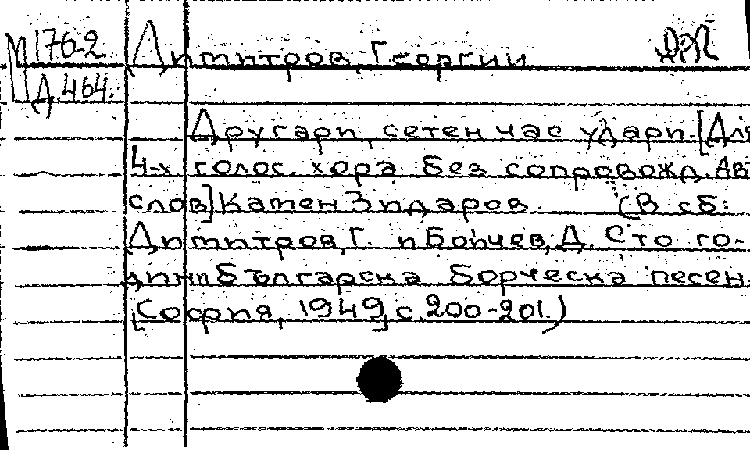 М176-2
Д.464.
Димитров, Георгий
Другари, сетен час удари. [Для
4-х голос. хора без сопровожд. Ав.
слов] Камен Зидаров. (В сб.:
Димитров, Г. и Бойчев, Д. Сто го-
дини Българска борческа песен.
[София, 1949, с. 200-201.)